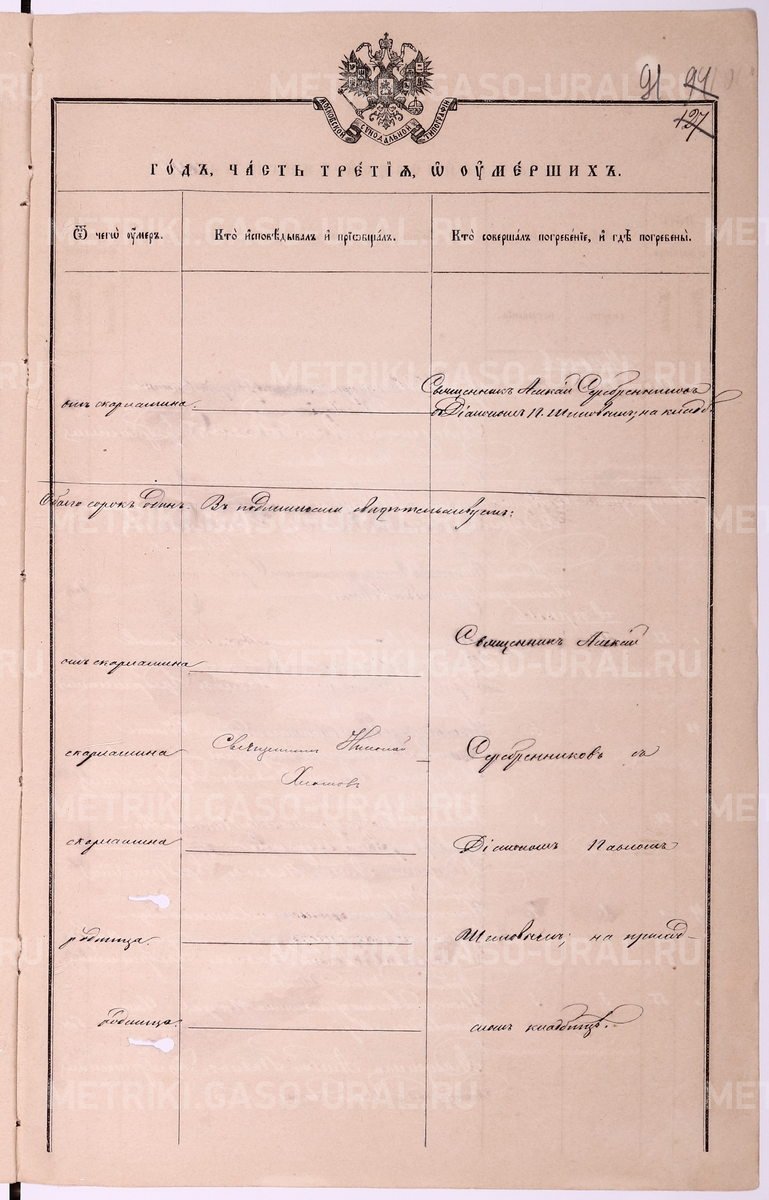 91 94
127
МОСКОВСКОЙ СѴНОДАЛЬНОЙ ТИПОГРАФІИ
ГО́ДЪ, ЧА́СТЬ ТРЕ́ТІѦ, Ѡ҆ ОУ҆МЕ́РШИХЪ.
Ѿ чегѡ̀ оу҆́меръ.
Кто̀ и҆сповѣ́дывалъ и҆ прїѡбща́лъ.
Кто̀ соверша́лъ погребе́нїе, и҆ гдѣ̀ погребены̀.
отъ скарлатина.
Священникъ Алексій Серебренниковъ
съ Діакономъ П. Шиловымъ, на кладб.
Всего сорокъ одинъ. Въ подлинности свидѣтельствуемъ:
отъ скарлатина
Священникъ Алексій
скарлатина
Священникъ Николай
Серебренниковъ съ
скарлатина
Діакономъ Павломъ
родимца.
Шиловымъ; на приход-
родимца.
скомъ кладбищѣ.
METRIKI.GASO-URAL.RU